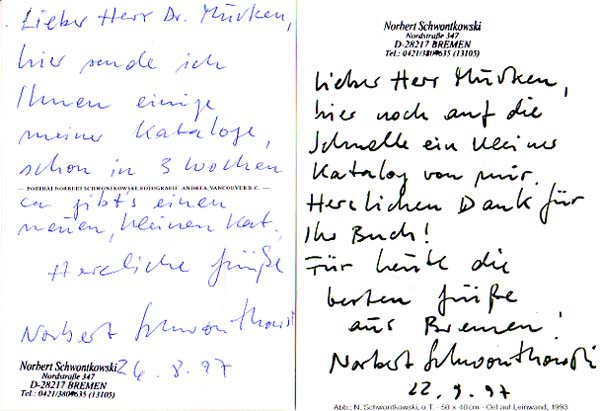 Lieber Herr Dr. Mürken,
hier sende ich
Ihnen einige
meiner Kataloge,
schon in 3 Wochen
PORTRÄT NORBERT SCHWONTKOWSKI, FOTOGRAFIE: ANDREA, VANCOUVER B.C.
ca gibt's einen
neuen, kleinen Kat.
Herzliche Grüße
Norbert Schwontkowski
Norbert Schwontkowski
26.8.97
Nordstraße 347
D-28217 BREMEN
Tel.: 0421/3809635 (13105)
Norbert Schwontkowski
Nordstraße 347
D-28217 BREMEN
Tel.: 0421/3809635 (13105)
Lieber Herr Mürken,
hier noch auf die
Schnelle ein kleiner
Katalog von mir.
Herzlichen Dank für
Ihr Buch!
Für heute die
besten Grüße
aus Bremen!
Norbert Schwontkowski
22.9.97
Abb.: N. Schwontkowski, o.T. - 50 x 40 cm - Oel auf Leinwand, 1993